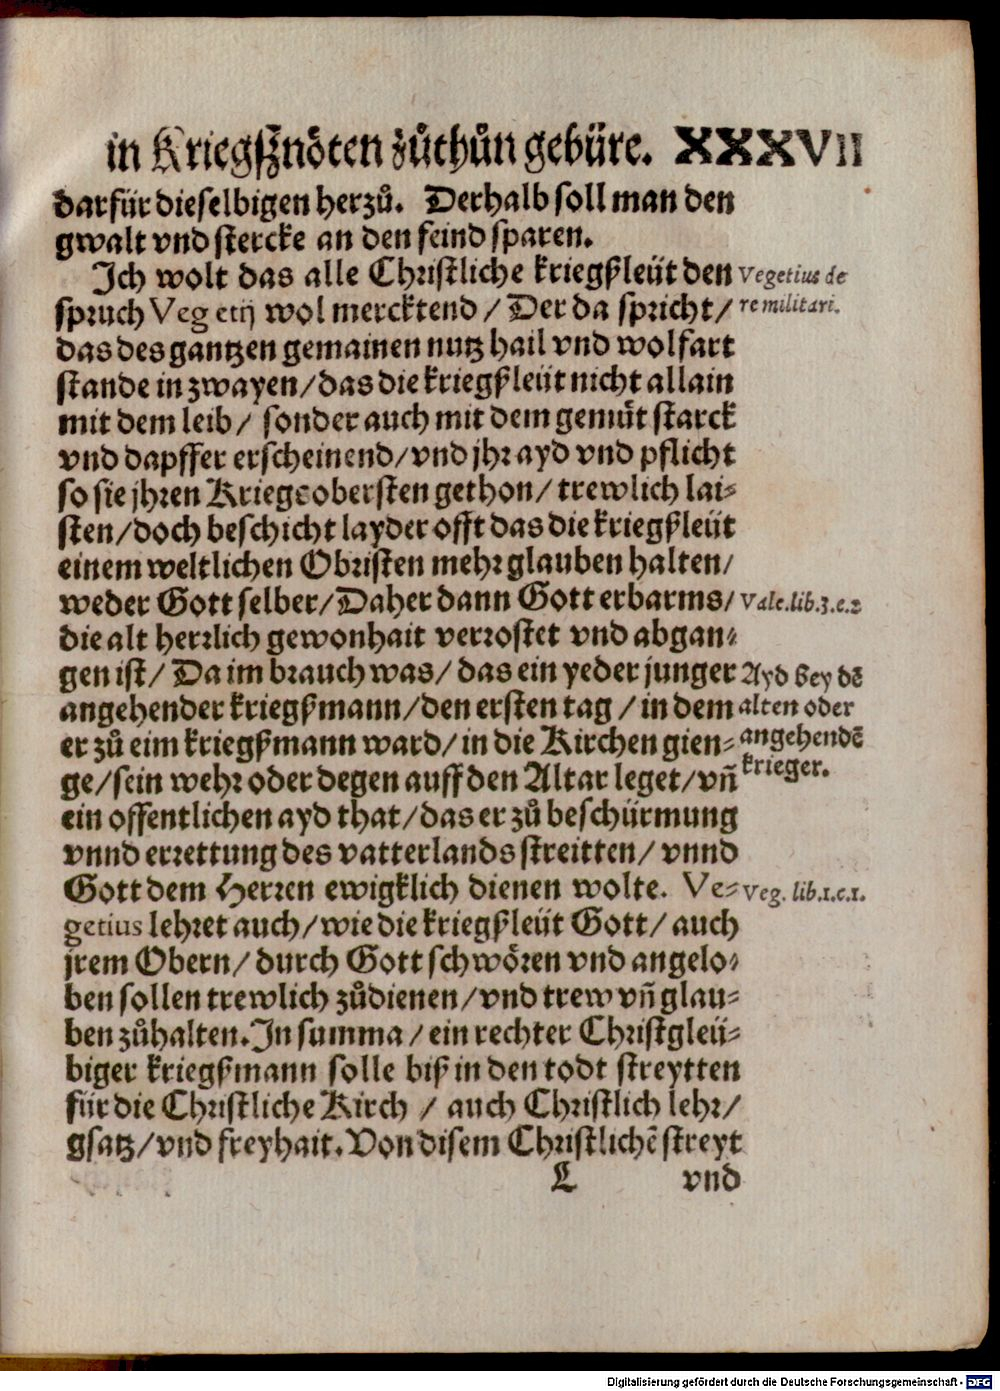 in Kriegsznöten zůthůn gebüre. XXXVII
darfür dieselbigen herzů. Derhalb soll man den
gwalt vnd stercke an den feind sparen.
Ich wolt das alle Christliche kriegßleüt den
Vegetius de
spruch Vegetij wol mercktend / Der da spricht /
re militari.
das des gantzen gemainen nutz hail vnd wolfart
stande in zwayen / das die kriegßleüt nicht allain
mit dem leib / sonder auch mit dem gemüt starck
vnd dapffer erscheinend / vnd jhr ayd vnd pflicht
so sie jhren Kriegsobersten gethon / trewlich lai-
sten / doch beschicht layder offt das die kriegßleüt
einem weltlichen Obristen mehr glauben halten /
weder Gott selber / Daher dann Gott erbarms /
Vale.lib.3.c.2
die alt herrlich gewonhait verrostet vnd abgan-
gen ist / Da im brauch was / das ein yeder junger
Ayd bey dē
angehender kriegßmann / den ersten tag / in dem
alten oder
er zů eim kriegßmann ward / in die Kirchen gien-
angehendē
ge / sein wehr oder degen auff den Altar leget / vñ
krieger.
ein offentlichen ayd that / das er zů beschürmung
vnnd errettung des vatterlands streitten / vnnd
Gott dem Herren ewigklich dienen wolte. Ve-
Veg. lib.1.c.1.
getius lehret auch / wie die kriegßleüt Gott / auch
jrem Obern / durch Gott schwören vnd angelo-
ben sollen trewlich zůdienen / vnd trew vñ glau-
ben zůhalten. In summa / ein rechter Christgleü-
biger kriegßmann solle biß in den todt streytten
für die Christliche Kirch / auch Christlich lehr /
gsatz / vnd freyhait. Von disem Christlichē streyt
L vnd
Digitalisierung gefördert durch die Deutsche Forschungsgemeinschaft - DFG